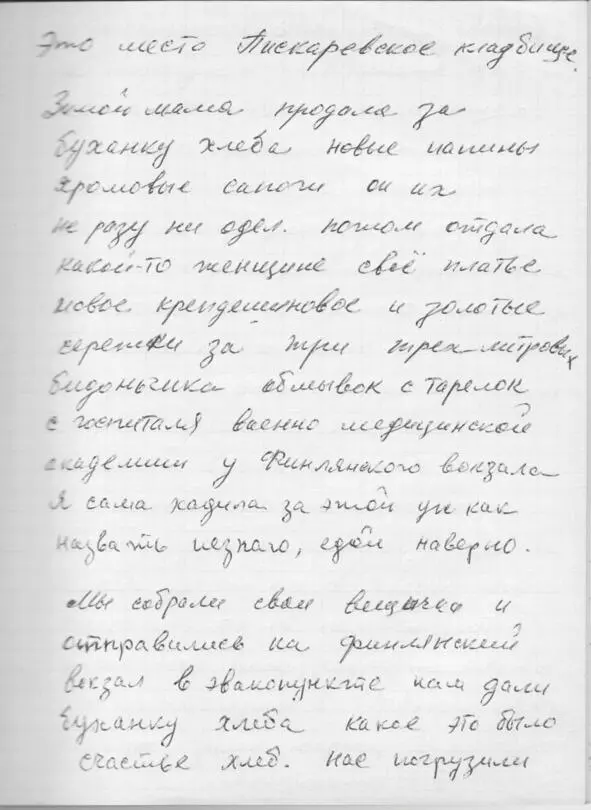 Это место Пискаревское кладбище.
Зимой мама продала за
буханку хлеба новые папины
хромовые сапоги он их
не разу ни одел. потом отдала
какой-то женщине своё платье
новое крепдешиновое и золотые
сережки за три трех-литровых
бидончика обмывок с тарелок
с госпиталя военно медицинской
академии у Финлянского вокзала
Я сама хадила за этой ун как
назвать незнаю, едой наверно.
Мы собрали свои вещички и
отправились на финлянский
вокзал в эвакопункте нам дали
буханку хлеба какое это было
счастье хлеб. нас погрузили